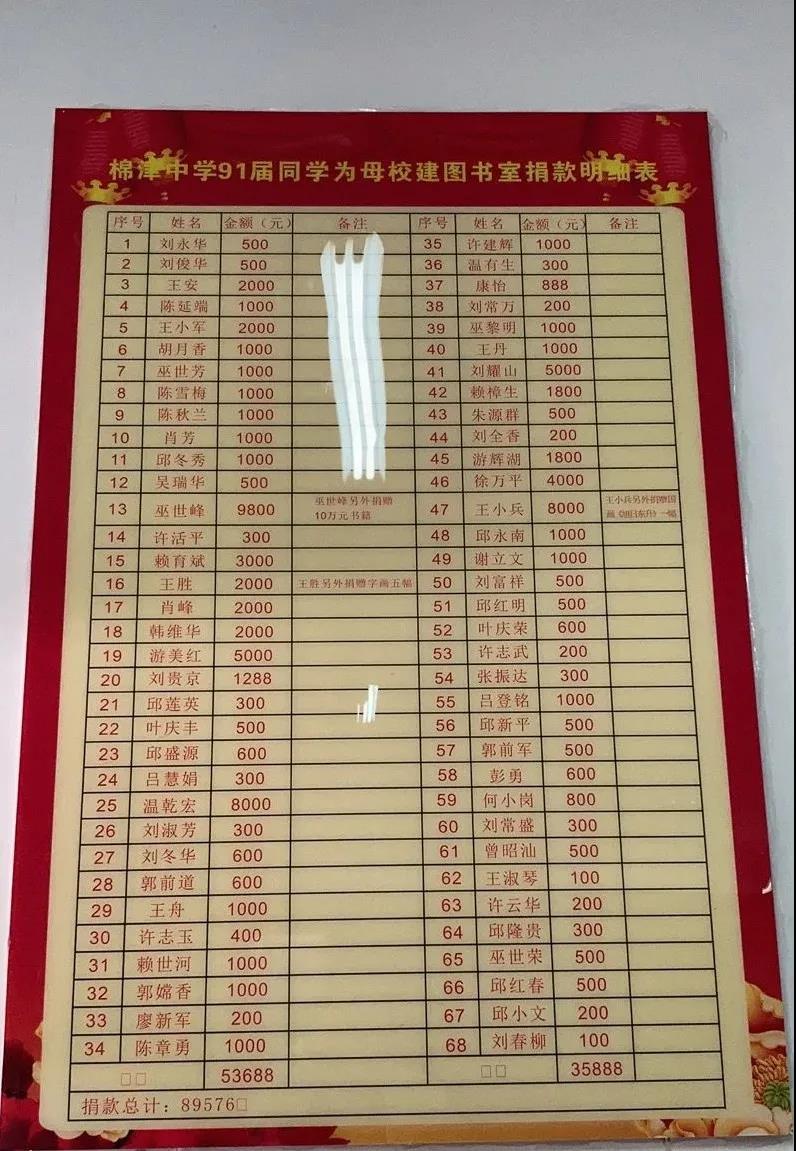 棉津中学91届同学为母校建图书室捐款明细表
序号 姓名 金额（元） 备注 序号 姓名 金额（元） 备注
1 刘永华 500 35 许建辉 1000
2 刘俊华 500 36 温有生 300
3 王安 2000 37 康怡 888
4 陈延端 1000 38 刘常万 200
5 王小军 2000 39 巫黎明 1000
6 胡月香 1000 40 王丹 1000
7 巫世芳 1000 41 刘耀山 5000
8 陈雪梅 1000 42 赖樟生 1800
9 陈秋兰 1000 43 朱源群 500
10 肖芳 1000 44 刘全香 200
11 邱冬秀 1000 45 游辉湖 1800
12 吴瑞华 500 46 徐万平 4000
13 巫世峰 9800 巫世峰另外捐赠 10万元书籍 47 王小兵 8000 王小兵另外捐赠国画《旭日东升》一幅
14 许活平 300 48 邱永南 1000
15 赖育斌 3000 49 谢立文 1000
16 王胜 2000 王胜另外捐赠字画五幅 50 刘富祥 500
17 肖峰 2000 51 邱红明 500
18 韩维华 2000 52 叶庆荣 600
19 游美红 5000 53 许志武 200
20 刘贵京 1288 54 张振达 300
21 邱莲英 300 55 吕登铭 1000
22 叶庆丰 500 56 邱新平 500
23 邱盛源 600 57 郭前军 500
24 吕慧娟 300 58 彭勇 600
25 温乾宏 8000 59 何小岗 800
26 刘淑芳 300 60 刘常盛 300
27 刘冬华 600 61 曾昭汕 500
28 郭前道 600 62 王淑琴 100
29 王舟 1000 63 许云华 200
30 许志玉 400 64 邱隆贵 300
31 赖世河 1000 65 巫世荣 500
32 郭嫦香 1000 66 邱红春 500
33 廖新军 200 67 邱小文 200
34 陈章勇 1000 68 刘春柳 100
□□ 53688 □□ 35888
捐款总计：89576□